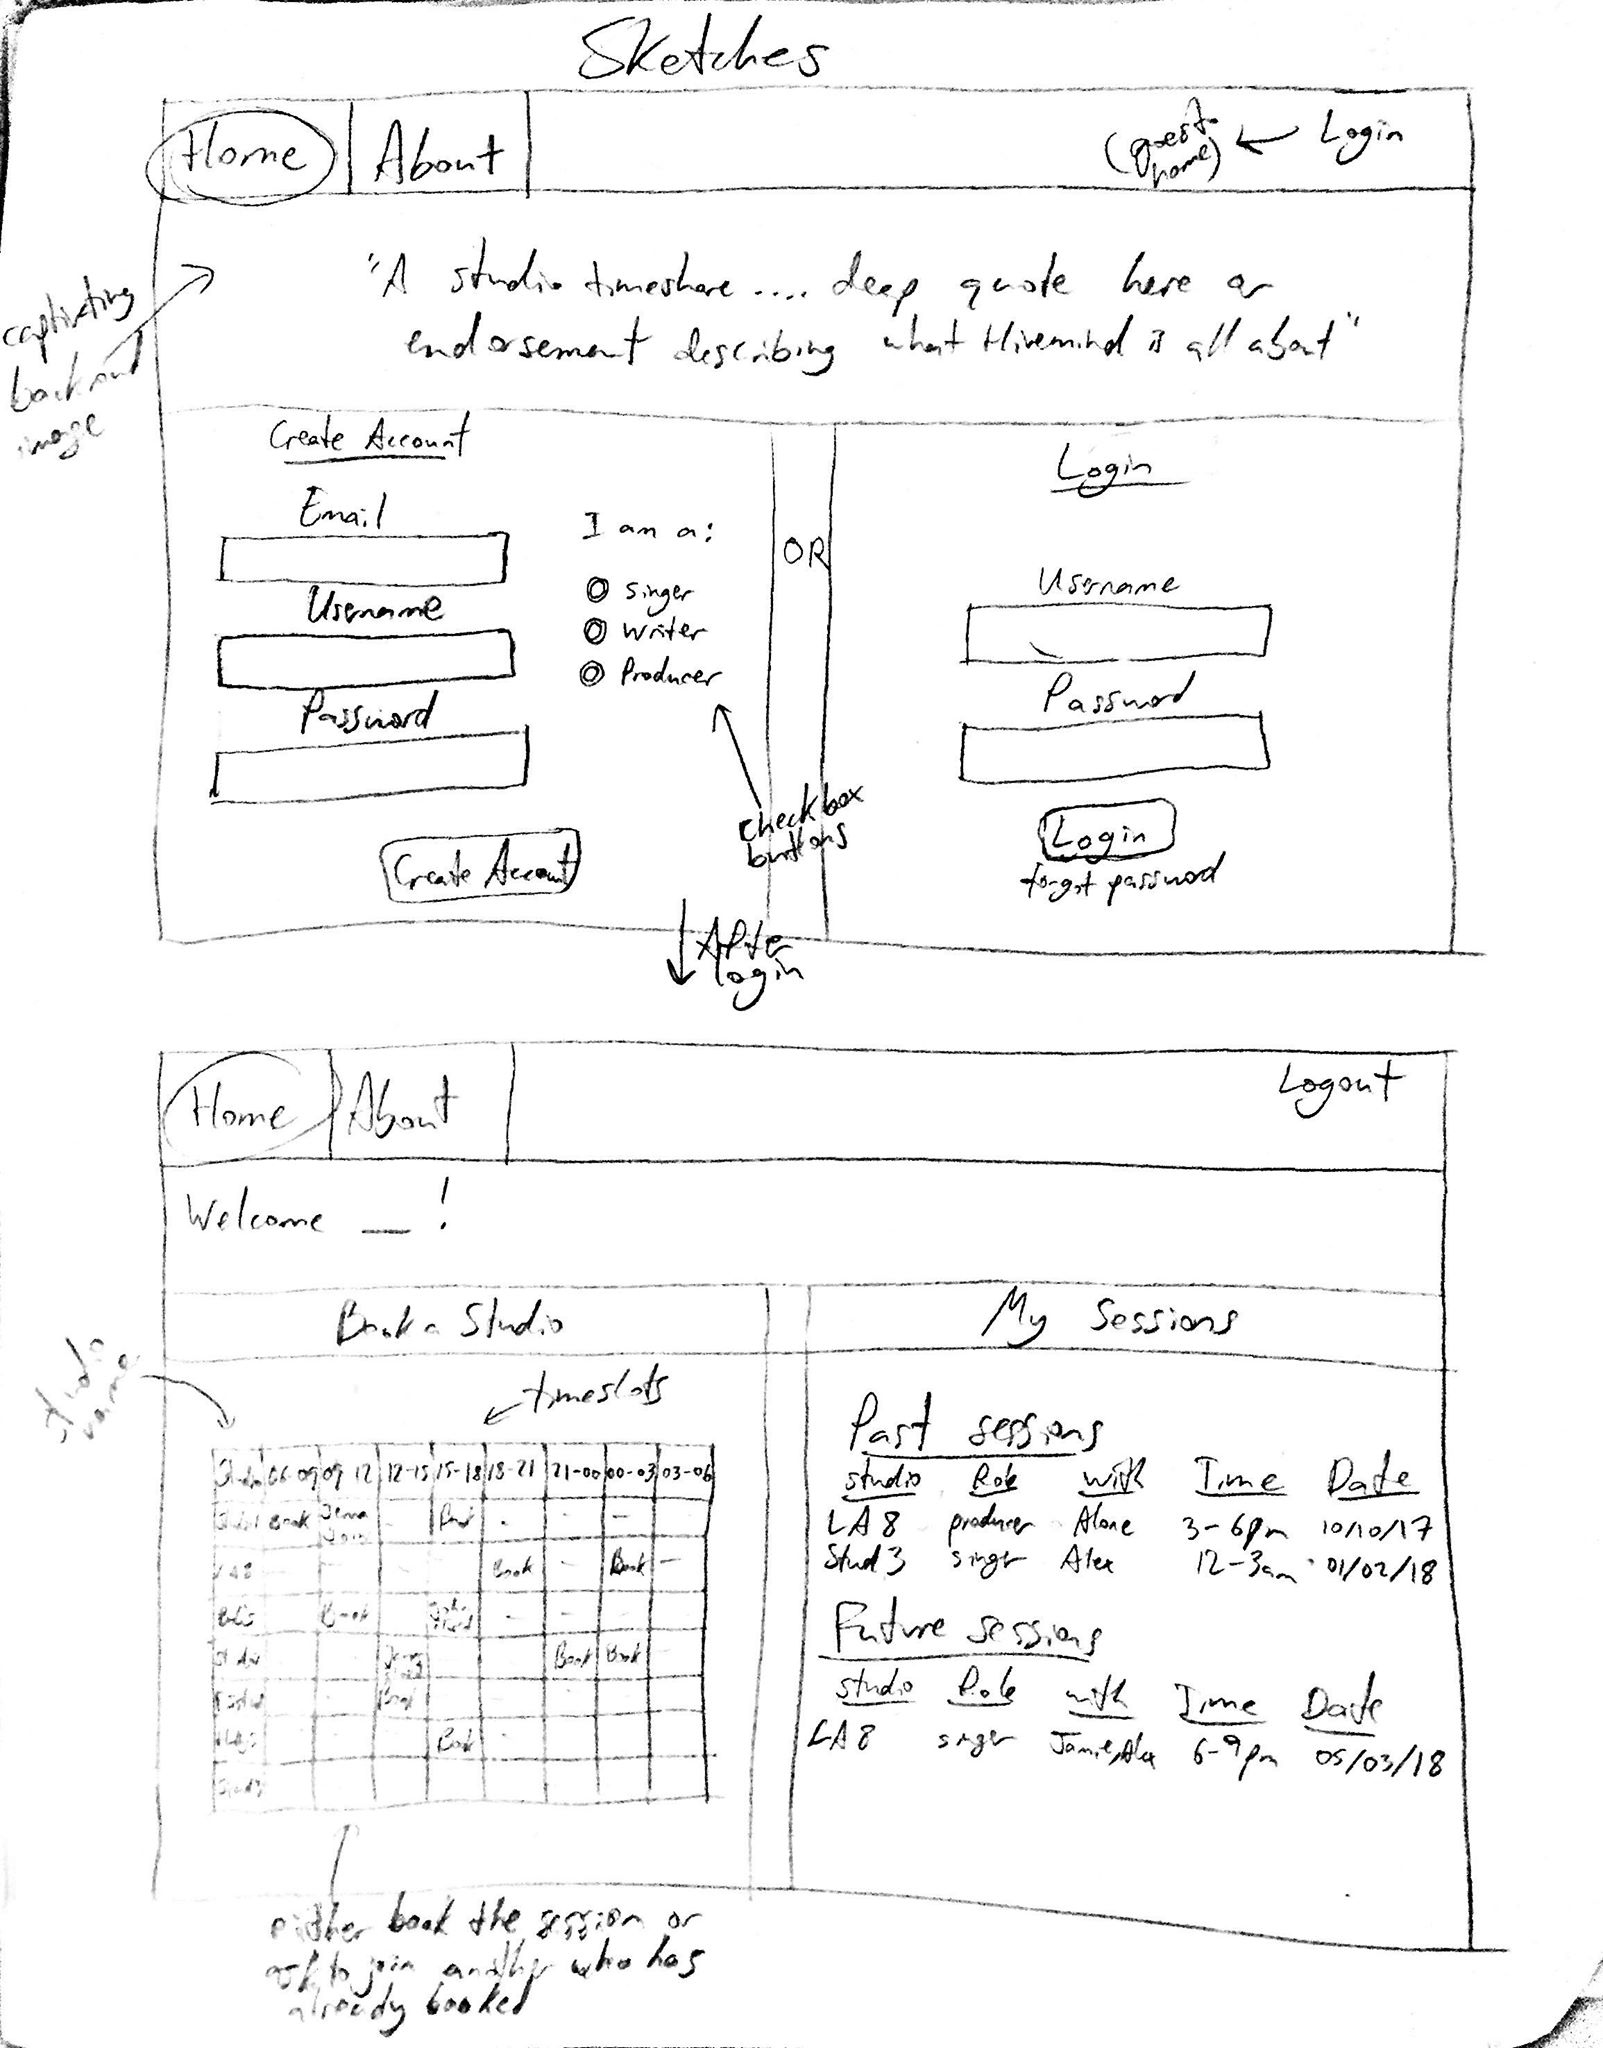 Sketches
Home About (guest home) ← Login
captivating
image
"A studio timeshare.... deep quote here or
endorsement describing what Hivemind is all about"
Create Account
Email
Username
Password
I am a:
singer
writer
Producer
checkbox
buttons
Create Account
OR
Login
Username
Password
Login
forgot password
After
login
Home About Logout
Welcome __ !
Book a Studio
My Sessions
studio
name
timeslots
06-09 09-12 12-15 15-18 18-21 21-00 00-03 03-06
Book - Book - - -
Book - Book -
Book - - -
Book Book
Book
Book -
either book the session or
ask to join another who has
already booked
Past sessions
studio Role with Time Date
LA8 producer Alone 3-6pm 10/10/17
Stud3 singer Alex 12-3am 01/02/18
Future sessions
studio Role with Time Date
LA8 singer Jamie, Alex 6-9pm 05/03/18